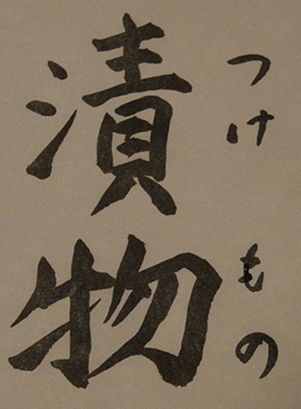 漬物
つけもの